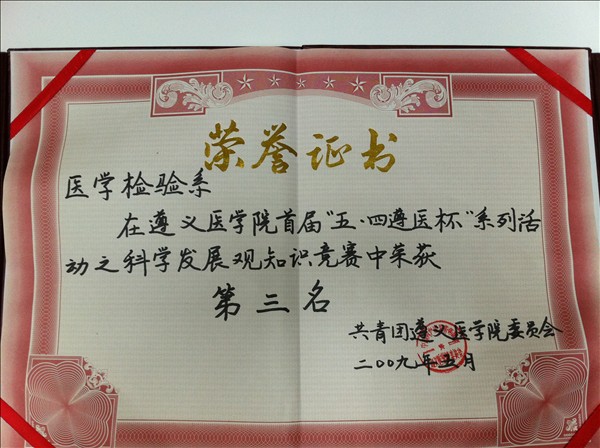 荣誉证书
医学检验系
在遵义医学院首届"五·四遵医杯"系列活
动之科学发展观知识竞赛中荣获
第三名
共青团遵义医学院委员会
二00九年五月